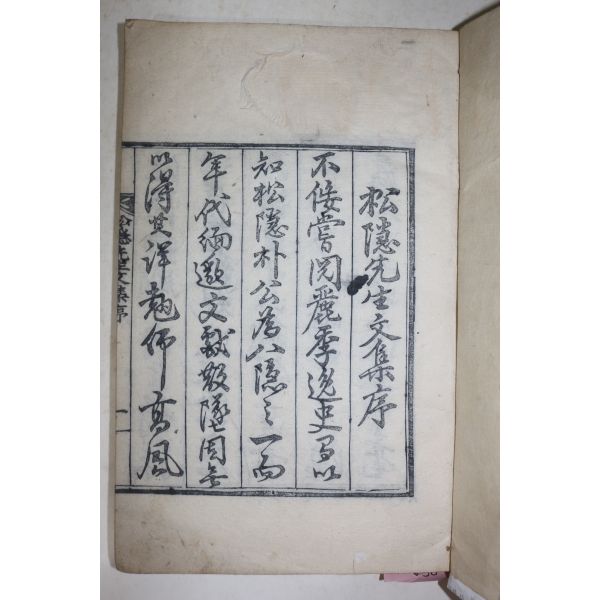 松隱先生文集序
不佞嘗閱麗季逸史得以
知松隱朴公為八隱之一而
年代緬邈文獻散墜固無
以得其詳勉師高風
松隱先生文集序
一